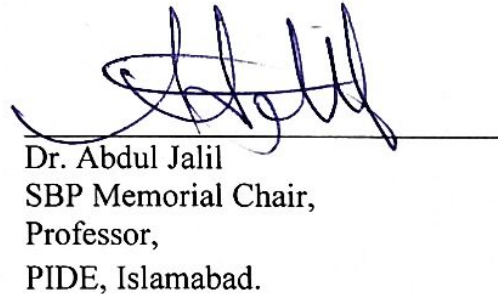 Dr. Abdul Jalil
SBP Memorial Chair,
Professor,
PIDE, Islamabad.